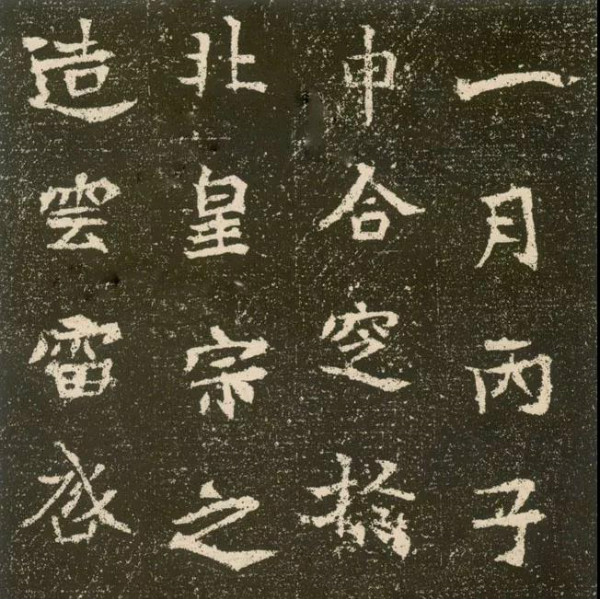 一月丙子
申合窆於
北皇宗之
造雲雷啓